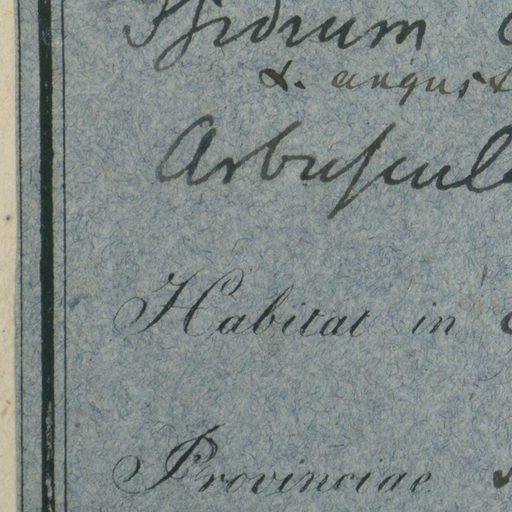 Psidium
α. angust
Arbuscul
Habitat in
Provinciae